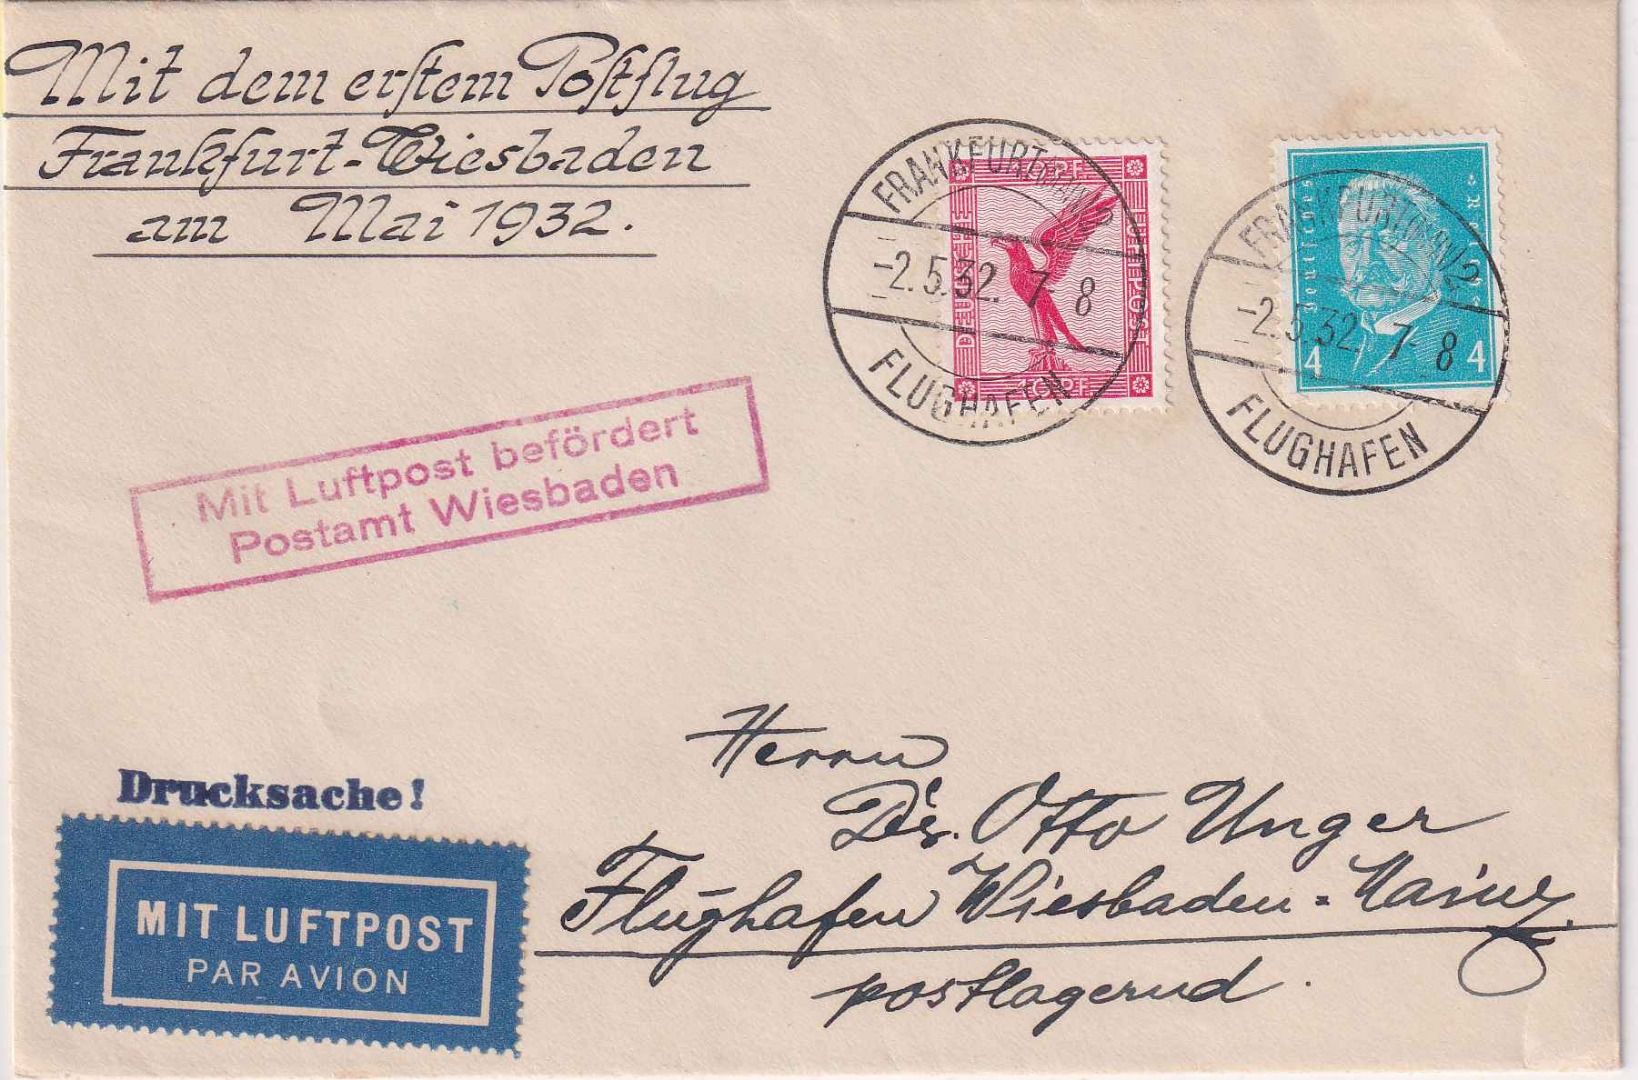 Mit dem erstem Postflug
Frankfurt-Wiesbaden
am Mai 1932.
FRANKFURT(MAIN)2
-2.5.32. 7-8
FLUGHAFEN
DEUTSCHE
LUFTPOST
10 PF
FRANKFURT(MAIN)2
-2.5.32. 7-8
FLUGHAFEN
Deutsches
4 4
Mit Luftpost befördert
Postamt Wiesbaden
Drucksache!
MIT LUFTPOST
PAR AVION
Herrn
Otto Unger
Flughafen Wiesbaden-Mainz.
postlagernd.